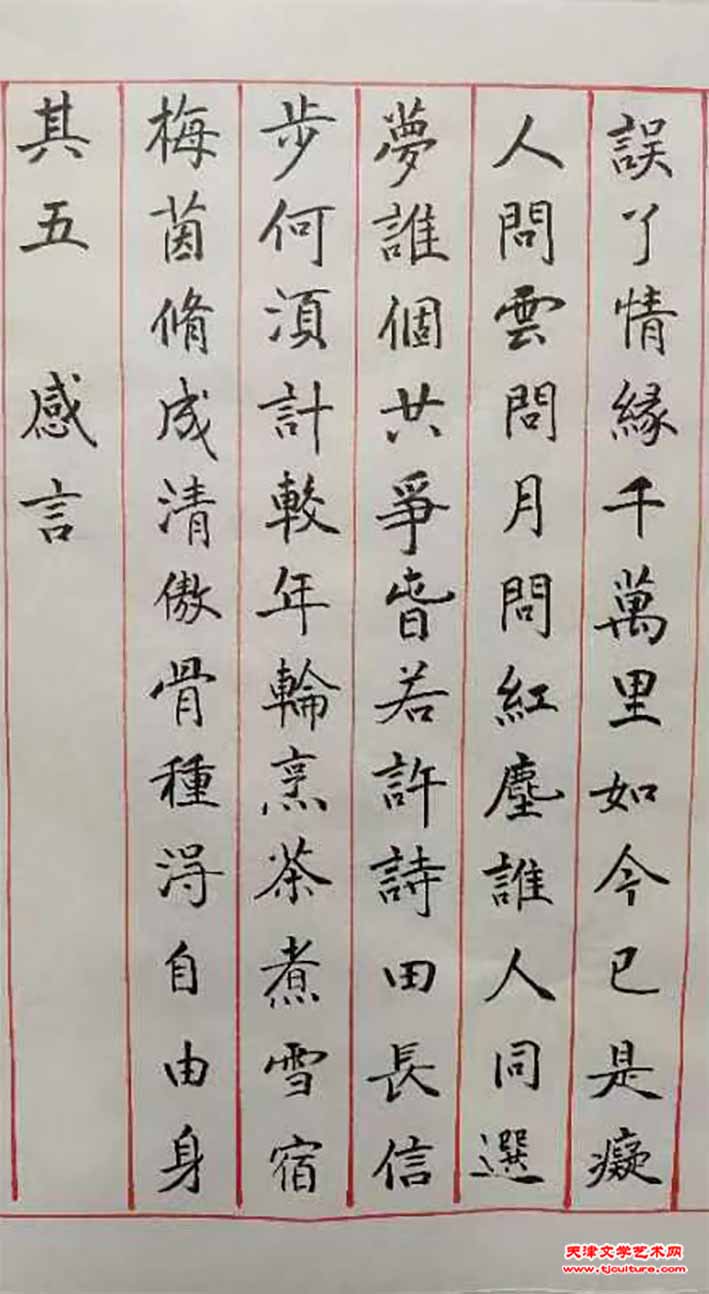 誤了情緣千萬里如今已是癡
人問雲問月問紅塵誰人同選
夢誰個共爭春若許詩田長信
步何須計較年輪烹茶煮雪宿
梅茵脩成清傲骨種得自由身
其五 感言
天津文学艺术网
www.tjculture.com